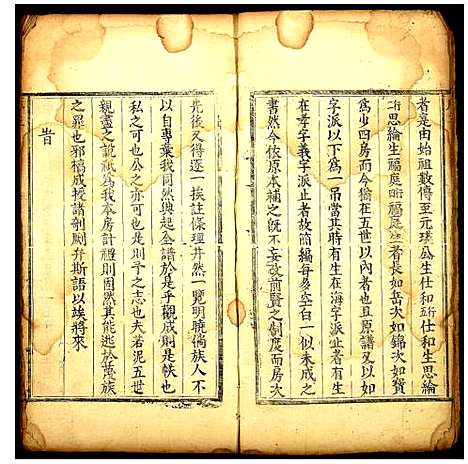 者是由始祖數傳至元琪公生仕和行五仕和生思綸
行二思綸生福庭行四福庭生者長如岳次如錦次如寶
為少四房而今擒在五世以內者也且原譜又以如
字派以下為一吊當其時有生在海字派止者有生
在孝字義字派止者故簡編每多空白一似未成之
書然今依原本補之既不妄改前賢之制度而房次
先後又得逐一挨註條理井然一覽明曉倘族人不
以自專棄我同然與起全譜於是乎觀成則是帙也
私之可也公之亦可也是則予之志也夫若泥五世
親盡之說祗為我本房計禮則固然其能逃於蔑族
之罪也邪稿成授譜剞劂弁斯語以埃將來
旹